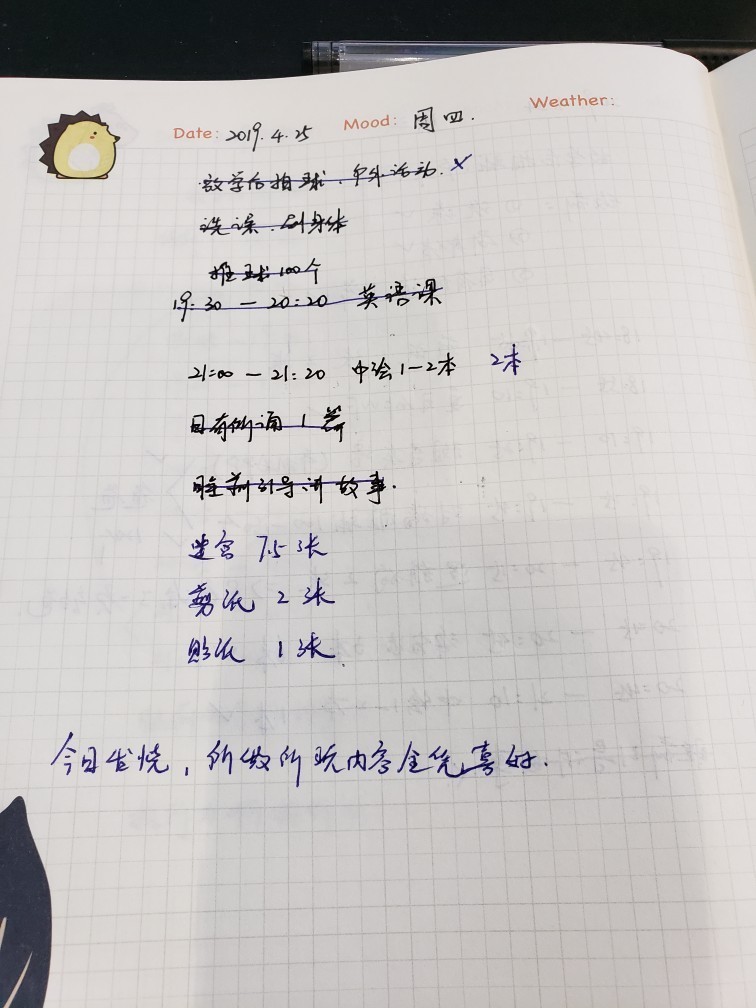 Date: 2019.4.25 Mood: 周四. Weather:
放学后拍球、户外活动. ×
洗澡、刮身体
推球100个
19:30 — 20:20 英语课
21:00 — 21:20 中绘1—2本 2本
日有所诵 1 篇
睡前引导讲故事.
迷宫 7.5张
剪纸 2 张
贴纸 1 张
今日发烧, 所做所玩内容全凭喜好.